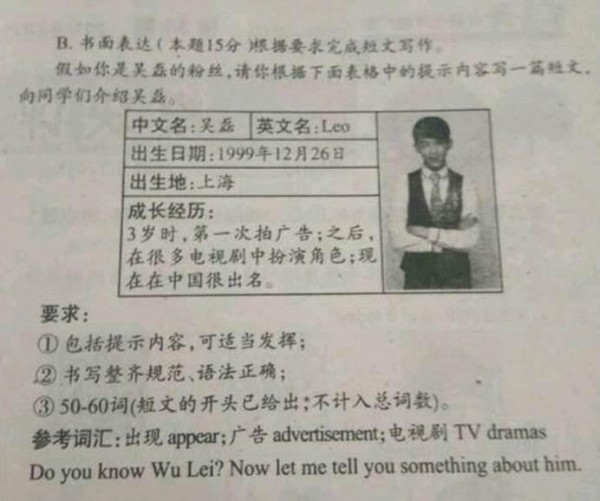 B. 书面表达(本题15分)根据要求完成短文写作。
假如你是吴磊的粉丝,请你根据下面表格中的提示内容写一篇短文,
向同学们介绍吴磊。
中文名:吴磊 英文名:Leo
出生日期:1999年12月26日
出生地:上海
成长经历:
3岁时,第一次拍广告;之后,
在很多电视剧中扮演角色;现
在在中国很出名。
要求:
①包括提示内容,可适当发挥;
②书写整齐规范、语法正确;
③50-60词(短文的开头已给出;不计入总词数)。
参考词汇:出现 appear;广告 advertisement;电视剧 TV dramas
Do you know Wu Lei? Now let me tell you something about him.